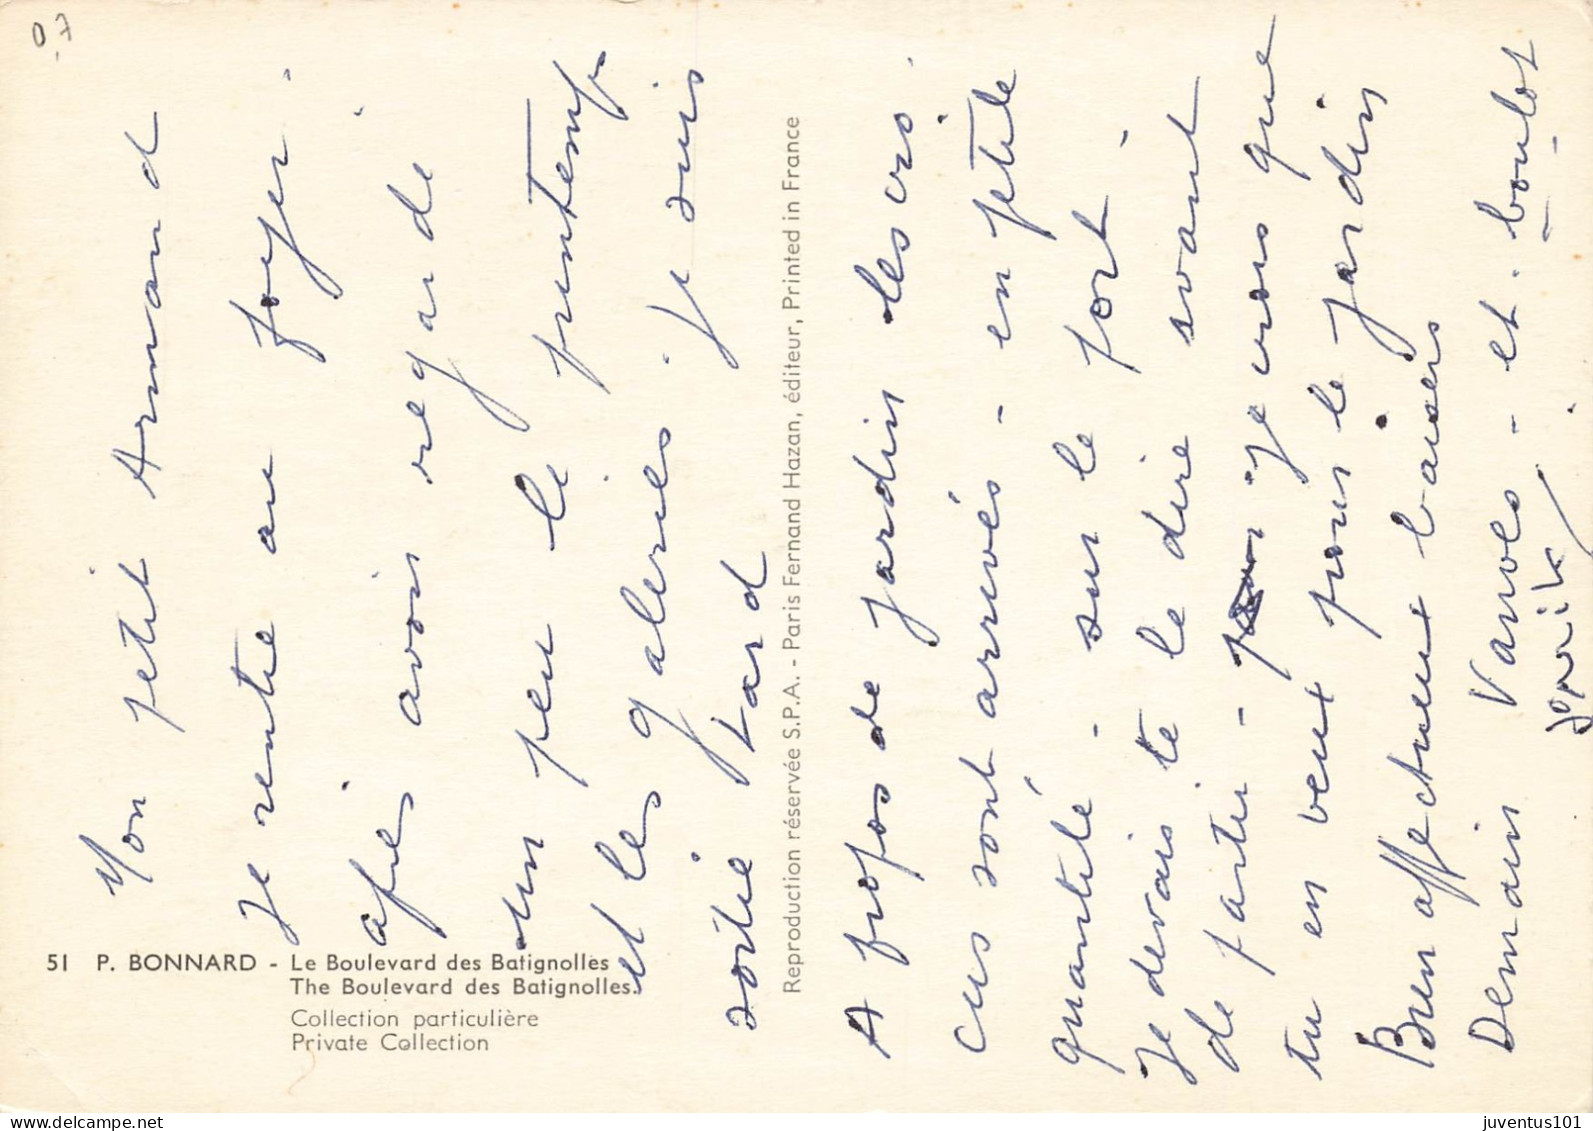 Mon petit Armand
Je rentre au foyer.
après avoir regardé
un peu le printemps
et les galeries. je suis
sortie tard
A propos de jardin les cro.
cus sont arrivés - en petite
quantité - sur le port -
Je devrais te le dire avant
de partir - je crois que
tu en veux pour le jardin
Bien affectueux baisers
Demain Vanves - et. boulot
51 P. BONNARD - Le Boulevard des Batignolles
The Boulevard des Batignolles.
Collection particulière
Private Collection
Reproduction réservée S.P.A. - Paris Fernand Hazan, éditeur, Printed in France
juventus101